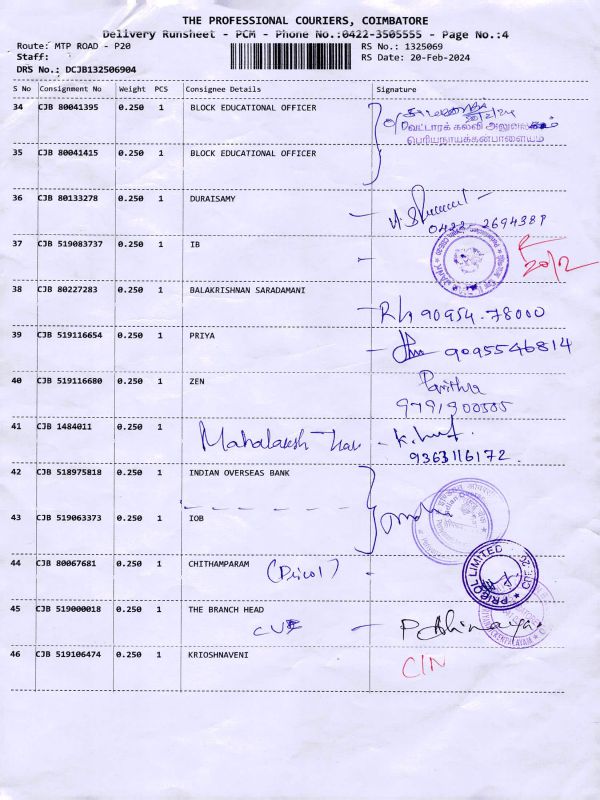 THE PROFESSIONAL COURIERS, COIMBATORE
Delivery Runsheet - PCM - Phone No.:0422-3505555 - Page No.:4
Route: MTP ROAD - P20 RS No.: 1325069
Staff: RS Date: 20-Feb-2024
DRS No.: DCJB132506904
S No Consignment No Weight PCS Consignee Details Signature
34 CJB 80041395 0.250 1 BLOCK EDUCATIONAL OFFICER
20/2/24
வட்டாரக் கல்வி அலுவலகம்
பெரியநாயக்கன்பாளையம்
35 CJB 80041415 0.250 1 BLOCK EDUCATIONAL OFFICER
36 CJB 80133278 0.250 1 DURAISAMY
0422 2694389
37 CJB 519083737 0.250 1 IB
20/2
38 CJB 80227283 0.250 1 BALAKRISHNAN SARADAMANI
90954.78000
39 CJB 519116654 0.250 1 PRIYA
9095546814
40 CJB 519116680 0.250 1 ZEN Pavithra
9791900505
41 CJB 1484011 0.250 1
9363116172
42 CJB 518975818 0.250 1 INDIAN OVERSEAS BANK
43 CJB 519063373 0.250 1 IOB
44 CJB 80067681 0.250 1 CHITHAMPARAM (Pricol) PRICOL LIMITED
45 CJB 519000018 0.250 1 THE BRANCH HEAD
46 CJB 519106474 0.250 1 KRIOSHNAVENI C/N